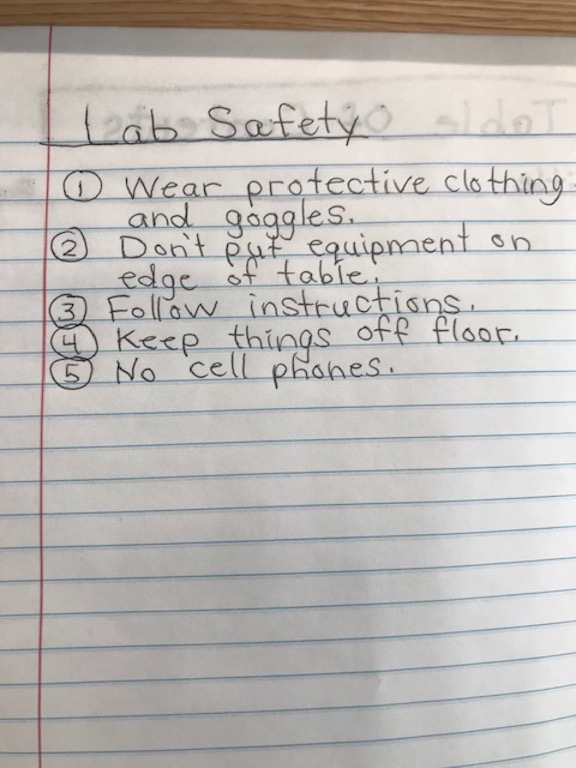 Lab Safety
① Wear protective clothing
and goggles.
② Don't put equipment on
edge of table.
③ Follow instructions.
④ Keep things off floor.
⑤ No cell phones.